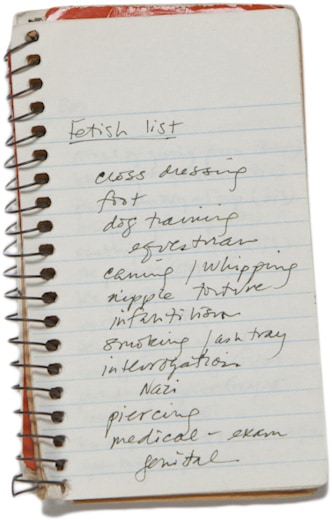 Fetish list
cross dressing
foot
dog training
equestrian
caning / whipping
nipple torture
infantilism
smoking / ash tray
interrogation
Nazi
piercing
medical - exam
genital